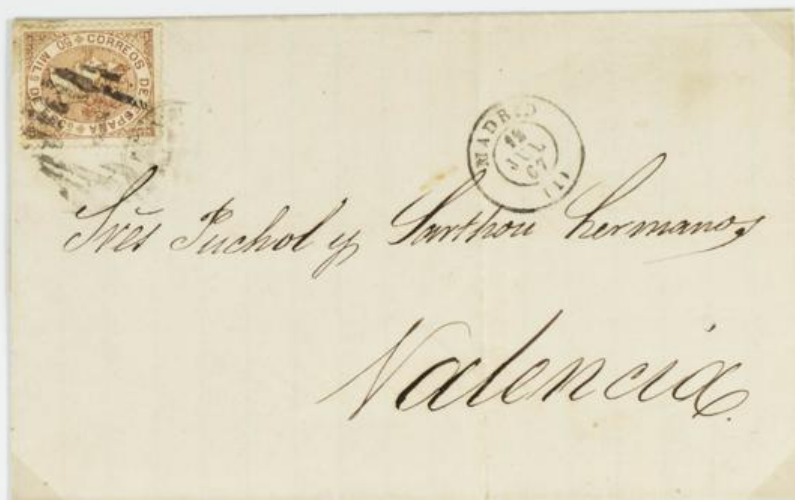 CORREOS DE ESPAÑA 50 MIL S DE
MADRID
JUL
67
(1)
Sres Puchol y Sarthou hermanos
Valencia